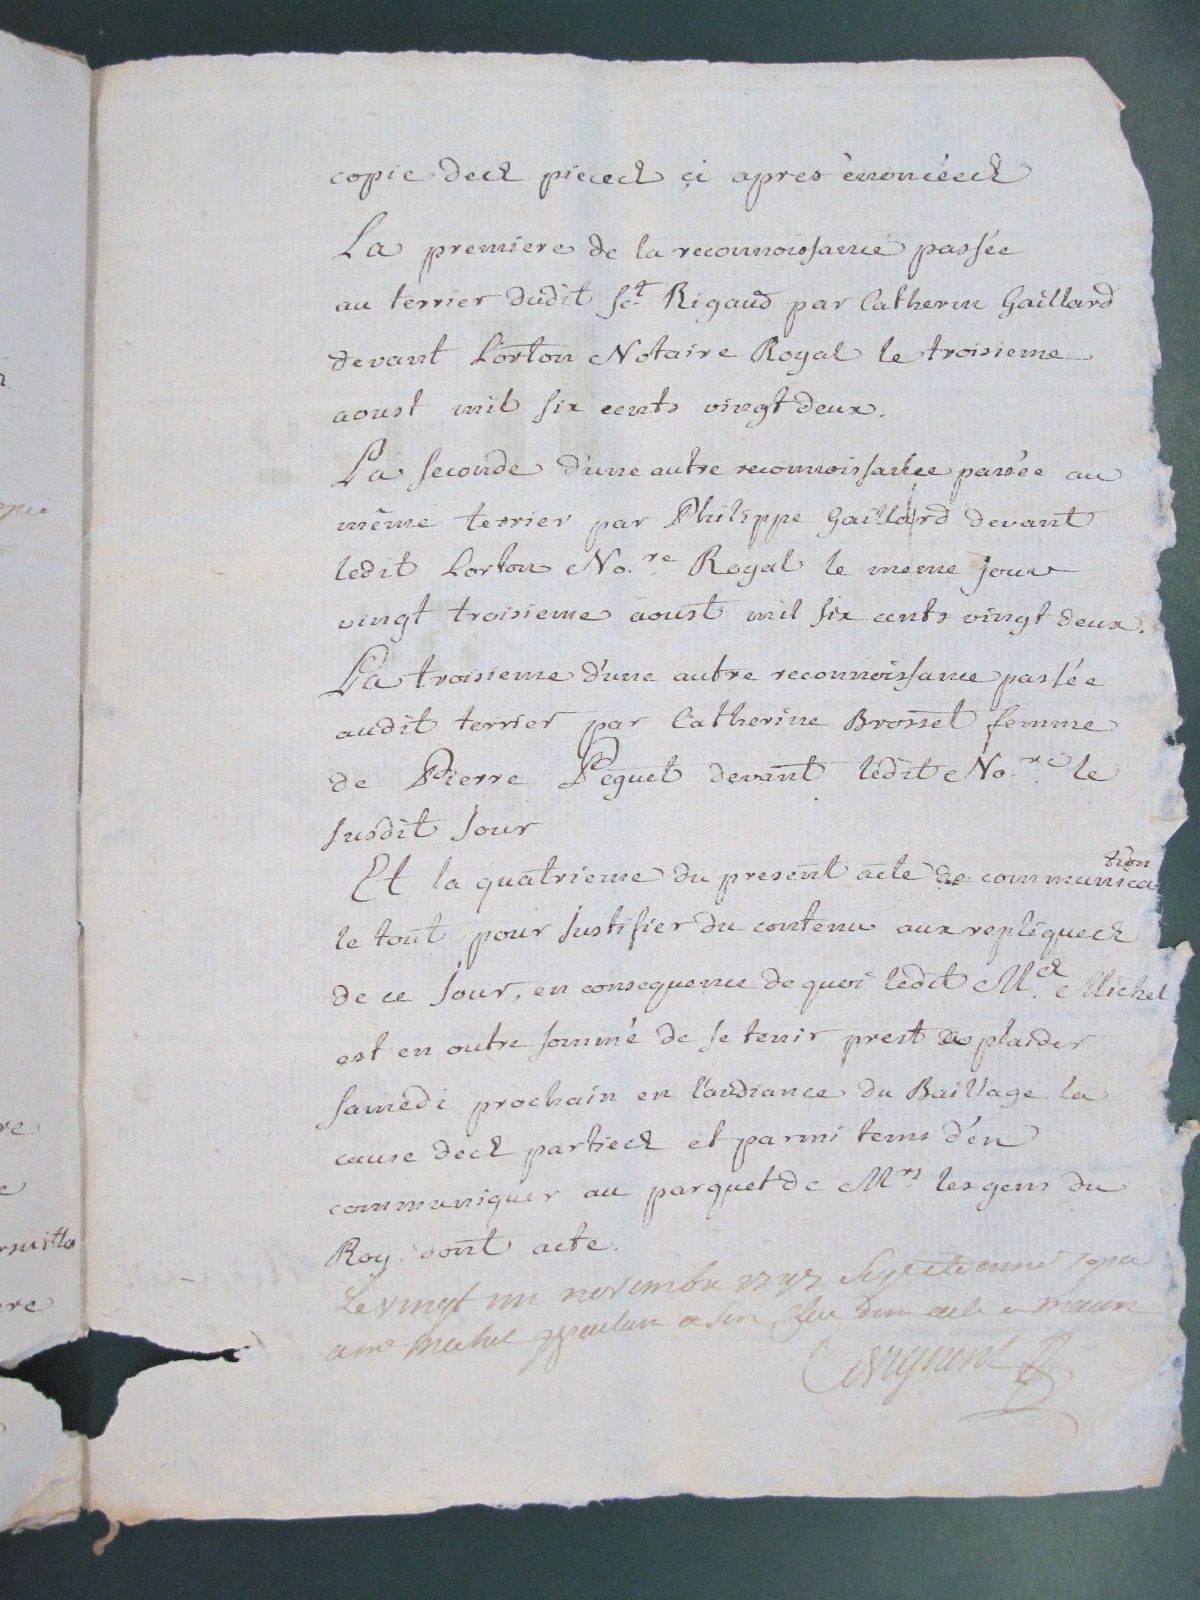 copie des pieces çi apres énoncées
La premiere de la reconnoissance passée
au terrier dudit St Rigaud par Catherin Gaillard
devant Lorton Notaire Royal le troisieme
aoust mil six cents vingt deux.
La seconde d'une autre reconnoissance passée au
même terrier par Philippe Gaillard devant
ledit Lorton No.re Royal le meme jour
vingt troisieme aoust mil six cents vingt deux.
La troisieme d'une autre reconnoissance passée
audit terrier par Catherine Brosset femme
de Pierre Peguet devant ledit No.re le
susdit Jour
Et la quatrieme du present acte de communication
le tout pour Justifier du contenu aux repliques
de ce Jour, en consequence de quoi ledit M.es Michel
est en outre sommé de se tenir prest a plaider
samedi prochain en l'audiance du Baillage la
cause des parties et parmi tems d'en
communiquer au parquet de Mrs les gens du
Roy. dont acte.
Le vingt un novembre
a me Michel a son